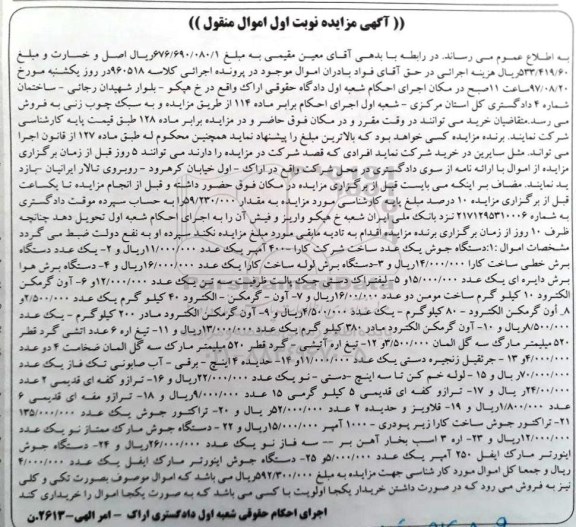 (( آگهی مزایده نوبت اول اموال منقول ))
به اطلاع عموم می رساند. در رابطه با بدهی آقای معین مقیمی به مبلغ ۶۷۶/۶۹۰/۰۸۰/۱ریال اصل و خسارت و مبلغ
۵۳۳/۴۱۹/۶۰ریال هزینه اجرائی در حق آقای فواد بادران اموال موجود در پرونده اجرائی کلاسه ۹۶۰۵۱۸در روز یکشنبه مورخ
۹۷/۰۸/۲۰ساعت ۱۱صبح در مکان اجرای احکام شعبه اول دادگاه حقوقی اراک واقع در خ هپکو - بلوار شهیدان رجائی - ساختمان
شماره ۴ دادگستری کل استان مرکزی - شعبه اول اجرای احکام برابر ماده ۱۱۴ از طریق مزایده و به سبک چوب زنی به فروش
می رسد.متقاضیان خرید می توانند در وقت مقرر و در مکان فوق حاضر و در مزایده برابر ماده ۱۲۸ طبق قیمت پایه کارشناسی
شرکت نمایند. برنده مزایده کسی خواهد بود که بالاترین مبلغ را پیشنهاد نماید همچنین محکوم له طبق ماده ۱۲۷ از قانون اجرا
می تواند. مثل سایرین در خرید شرکت نماید افرادی که قصد شرکت در مزایده را دارند می توانند ۵ روز قبل از زمان برگزاری
مزایده از اموال با ارائه نامه از سوی دادگستری در محل شرکت واقع در اراک - اول خیابان کرهرود - روبروی تالار ایرانیان -بازد
ید نمایند. مضاف بر اینکه می بایست در روز برگزاری مزایده در مکان فوق حضور داشته و قبل از انجام مزایده تا یکساعت
قبل از برگزاری مزایده ۱۰ درصد مبلغ پایه کارشناسی مورد مزایده به مقدار ۵۹/۲۳۰/۰۰۰ریال را به حساب سپرده موقت دادگستری
به شماره ۲۱۷۱۲۹۵۳۱۰۰۰۶ نزد بانک ملی ایران شعبه خ هپکو واریز و فیش آن را به اجرای احکام شعبه اول تحویل دهد چنانچه
ظرف ۱۰ روز از زمان برگزاری برنده مزایده اقدام به تادیه مابقی مورد مبلغ مزایده نکند سپرده او به نفع دولت ضبط می گردد
مشخصات اموال :۱:دستگاه جوش یک عدد ساخت شرکت کارا -۴۰۰ آمپر یک عدد ۱۱/۰۰۰/۰۰۰ریال و ۲- یک عدد دستگاه
برش خطی ساخت کارا ۱۴/۰۰۰/۰۰۰ریال و ۳-دستگاه برش لوله ساخت کارا یک عدد ۱۶/۰۰۰/۰۰۰ریال و ۴- دستگاه برش هوا
برش دایره ای یک عدد ۱۵/۰۰۰/۰۰۰و ۵- یک عدد ۱۲/۰۰۰/۰۰۰و ۶- آون گرمکن
الکترود ۱۰ کیلو گرم ساخت مومن دو عدد ۱۶/۰۰۰/۰۰۰ریال و ۷- آون - گرمکن - الکترود ۴۰ کیلو گرم یک عدد ۲/۵۰۰/۰۰۰و
۸. آون گرمکن الکترود - ۸۰ کیلوگرم - یک عدد ۴/۵۰۰/۰۰۰ریال و ۹- آون گرمکن الکترود مادر ۲۰۰ کیلوگرم - یک عدد
۸/۵۰۰/۰۰۰ریال و ۱۰- آون گرمکن الکترود مادر کیلوگرم یک عدد ۱۳/۰۰۰/۰۰۰ریال و ۱۱- تیغ اره ۶ عدد اتشی گرد قطر
۵۲۰ میلیمتر مارگ سه گل المان ۳/۵۰۰/۰۰۰و ۱۲- تیغ اره آتشی - گرد قطر ۵۲۰ میلیمتر مارک سه گل المان ضخامت ۴ دو عدد
۴/۰۰۰/۰۰۰و ۱۳- جرثقیل زنجیره دستی یک عدد ۱۷/۰۰۰/۰۰۰و ۱۴- حدیده ۲ اینچ - برقی - آب صابونی تک فاز یک عدد
۷۰/۰۰۰/۰۰۰ریال و ۱۵- لوله خم کن تا سه اینچ دستی - نو یک عدد ۲۲/۰۰۰/۰۰۰ریال و ۱۶- ترازو کفه ای قدیمی ۲ عدد
۲۴/۰۰۰/۰۰۰ریال و ۱۷- ترازو کفه ای قدیمی ۵ کیلو گرمی ۱۵ عدد ۹/۰۰۰/۰۰۰ریال و ۱۸- ترازو مفه ای قدیمی ۶
عدد ۱/۸۰۰/۰۰۰ریال و ۱۹- قلاویز و حدیده ۲ عدد ۵۲/۰۰۰/۰۰۰ریال و ۲۰- تراکتور جوش یک عدد ۱۳۵/۰۰۰/۰۰۰
۲۱- تراکتور جوش ساخت کارا زیر پودری - ۱۰۰۰ آمپر ۱۵/۰۰۰/۰۰۰ریال و ۲۲ - دستگاه جوش مارک ممتاز نو یک عدد
۱۲/۰۰۰/۰۰۰ریال و ۲۳- اره ۳ اسب بخار آهن بر -- سه فاز نو یک عدد ۲۶/۰۰۰/۰۰۰ریال و ۲۴- دستگاه جوش
اینورتر مارک ایفل ۲۵۰ آمپر یک عدد ۵/۰۰۰/۰۰۰و ۲۵- دستگاه جوش اینورتر مارک ایفل یک عدد ۴/۰۰۰/۰۰۰
ریال و جمعا کل اموال مورد کارشناسی جهت مزایده به مبلغ ۵۹۲/۳۰۰/۰۰۰ریال می باشد که اموال موصوف بصورت تکی و کلی
نیز به فروش می رود که در صورت داشتن خریدار یکجا اولویت با کسی می باشد که به صورت یکجا اموال را خریداری کند
اجرای احکام حقوقی شعبه اول دادگستری اراک - امر الهی-۲۶۱۳.ن